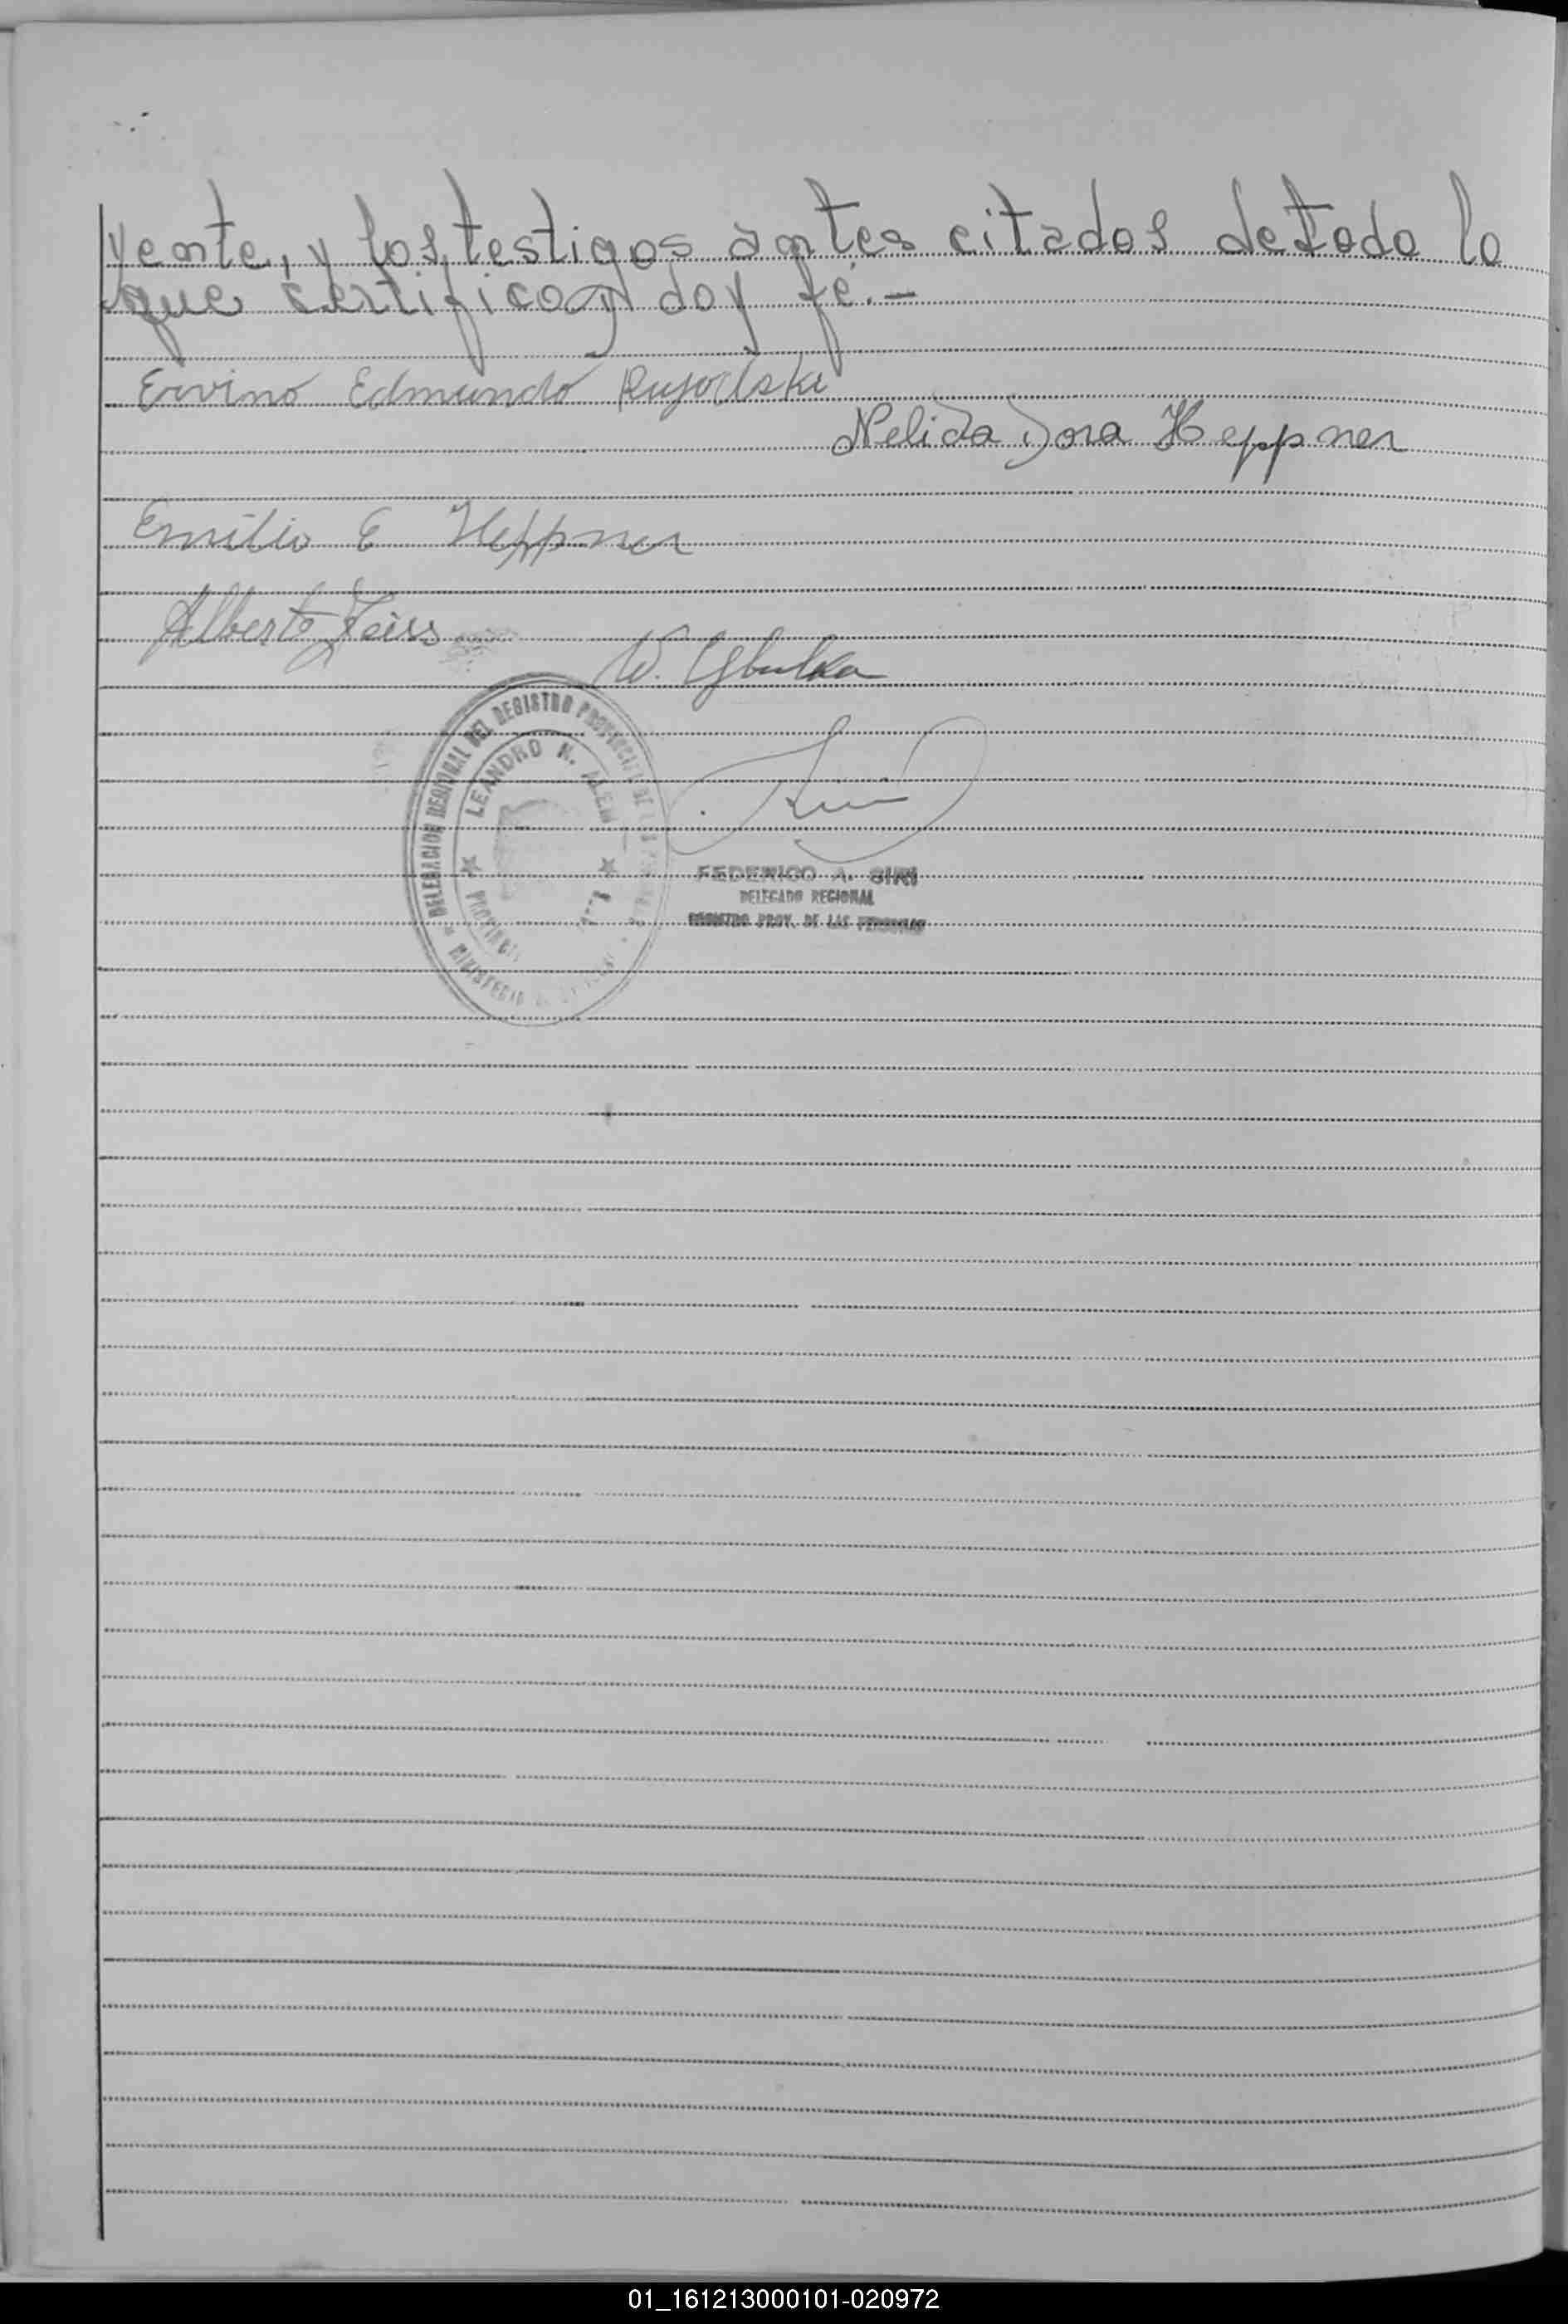 yente, y los testigos antes citados detodo lo
que certifico y doy fé.-
Ervino Edmundo
Nelida Dora Heppner
Emilio E Heppner
Alberto
W.
DELEGACION REGIONAL DEL REGISTRO PROVINCIAL DE LAS
LEANDRO N. ALEM
PROVINCIA
MINISTERIO DE
FEDERICO A. SIRI
DELEGADO REGIONAL
REGISTRO PROV. DE LAS PERSONAS
01_161213000101-020972